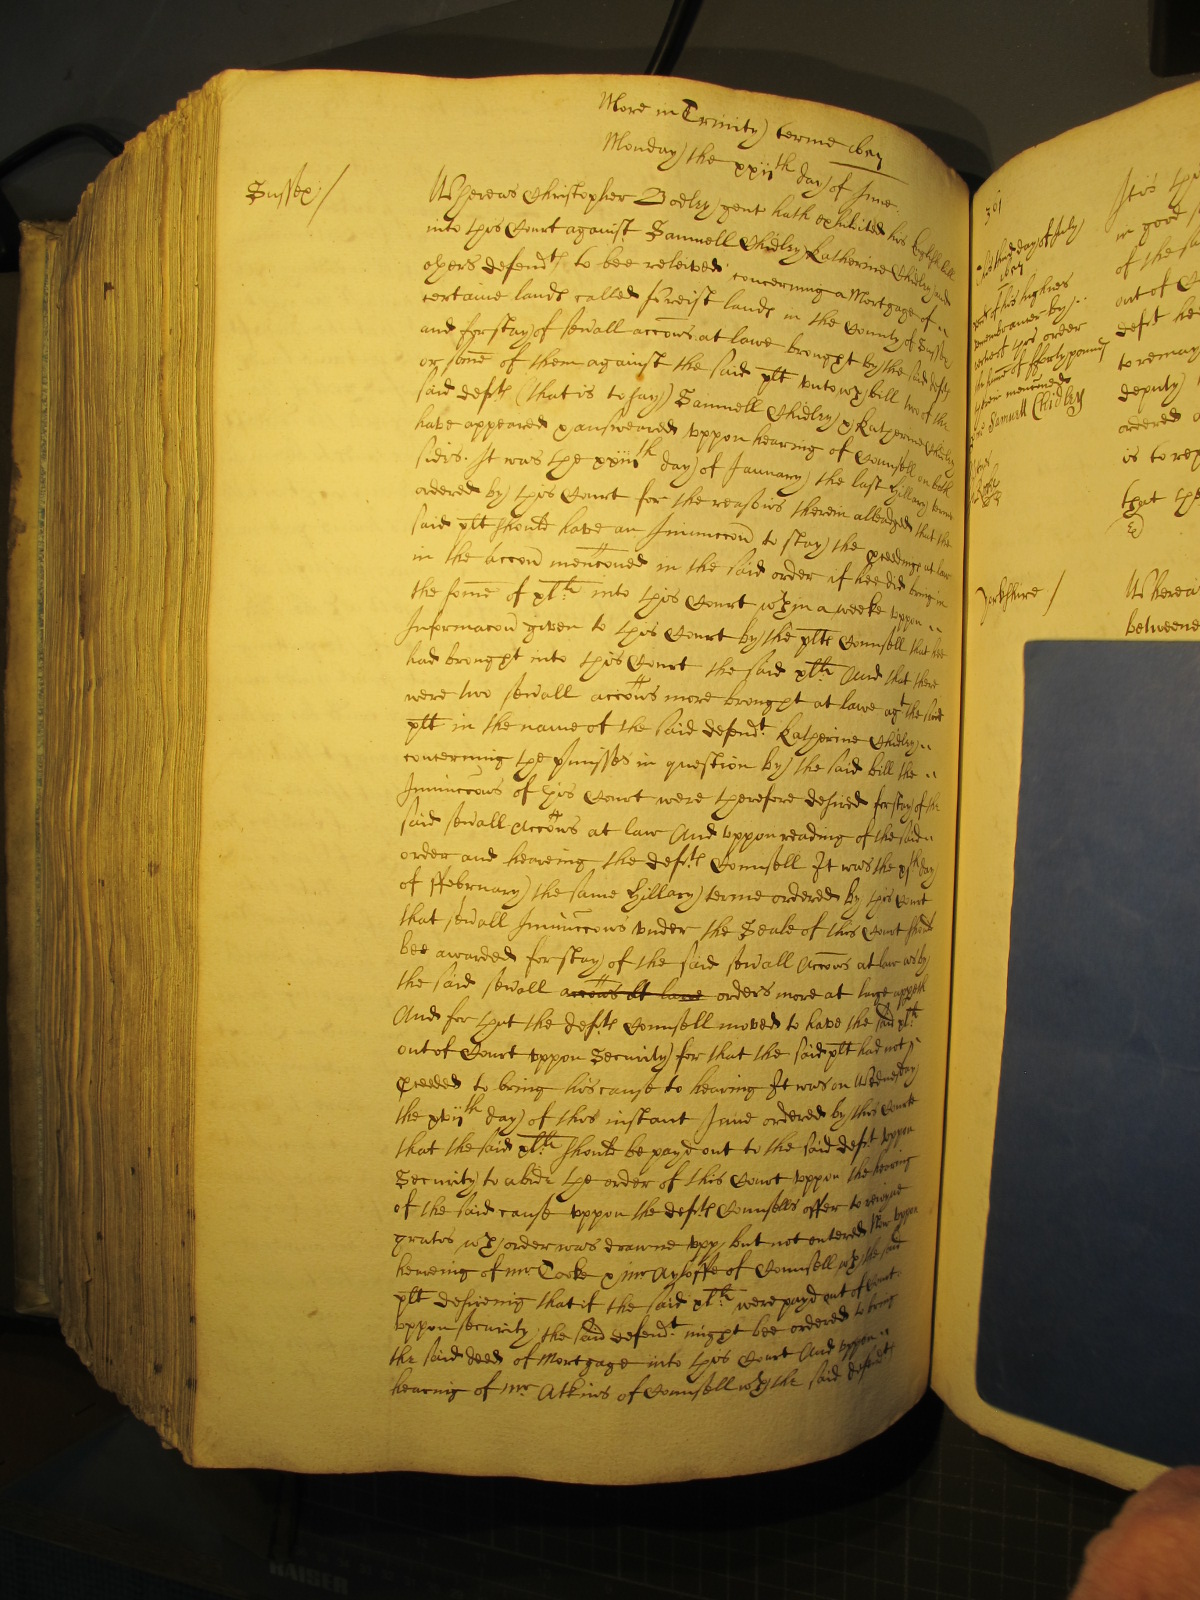 More in Trinity terme 1657
Monday the xxijth day of June
Sussex /
Whereas Christopher Bodley gent hath exhibited his English bill
into this Court against Samuell Chidley Katherine Chidley and
others defendts to bee releived concerning a Mortgage of
certaine lands called forrist lands in the County of Sussex
and for stay of sev'all accons at lawe brought by the said defts
or some of them against the said plt unto wch bill two of the
said defts (that is to say) Samuell Chidley & Katherine Chidley
have appeared & answeared uppon hearing of Counsell on both
sides. It was the xxiijth day of January the last Hillary terme
ordered by this Court for the reasons therein alleadged that the
said plt should have an Iniunccon to stay the pceedings at law
in the accon menconed in the said order if hee did bring in
the some of xlli into this Court wthin a weeke uppon
Informacon given to this Court by the plts Counsell that hee
had brought into this Court the said xlli And that there
were two sev'all accons more brought at lawe agt the said
plt in the name of the said defendt Katherine Chidley
concerning the p'misses in question by the said bill the
Iniunccons of this Court were therefore desired for stay of the
said sev'all accons at law And uppon reading of the said
order and heareing the defts Counsell It was the day
of ffebruary the same Hillary terme ordered by this Court
that sev'all Iniunccons under the Seale of this Court should
bee awarded for stay of the said sev'all accons at law as by
the said sev'all accons at lawe orders more at large appeth
And for that the defts Counsell moved to have the said xlli
out of Court uppon Security for that the said plt had not
pceeded to bring his cause to hearing It was on Wednesday
the xvijth day of this instant June ordered by this Courte
that the said xlli should be payd out to the said deft uppon
Security to abide the order of this Court uppon the hearing
of the said cause uppon the defts Counsells offer to
gratis wch order was drawne upp but not entered Now uppon
heareing of mr Cooke & mr Ayloffe of Counsell wth the said
plt desireing that if the said xlli were payd out of Court
uppon security the said defendt might bee ordered to bring
the said deed of Mortgage into this Court And uppon
hearing of mr Atkins of Counsell wth the said defendts
361
third day of July
1657
of his highnes
remembrancer by
this order
the some of fforty pounds
menconed
Samuell Chidley
Yorkshire /
It is
in good
of the sa
out of C
deft he
to remay
deputy
ordered
is to rep
that the
Whereas
betweene
KAISER